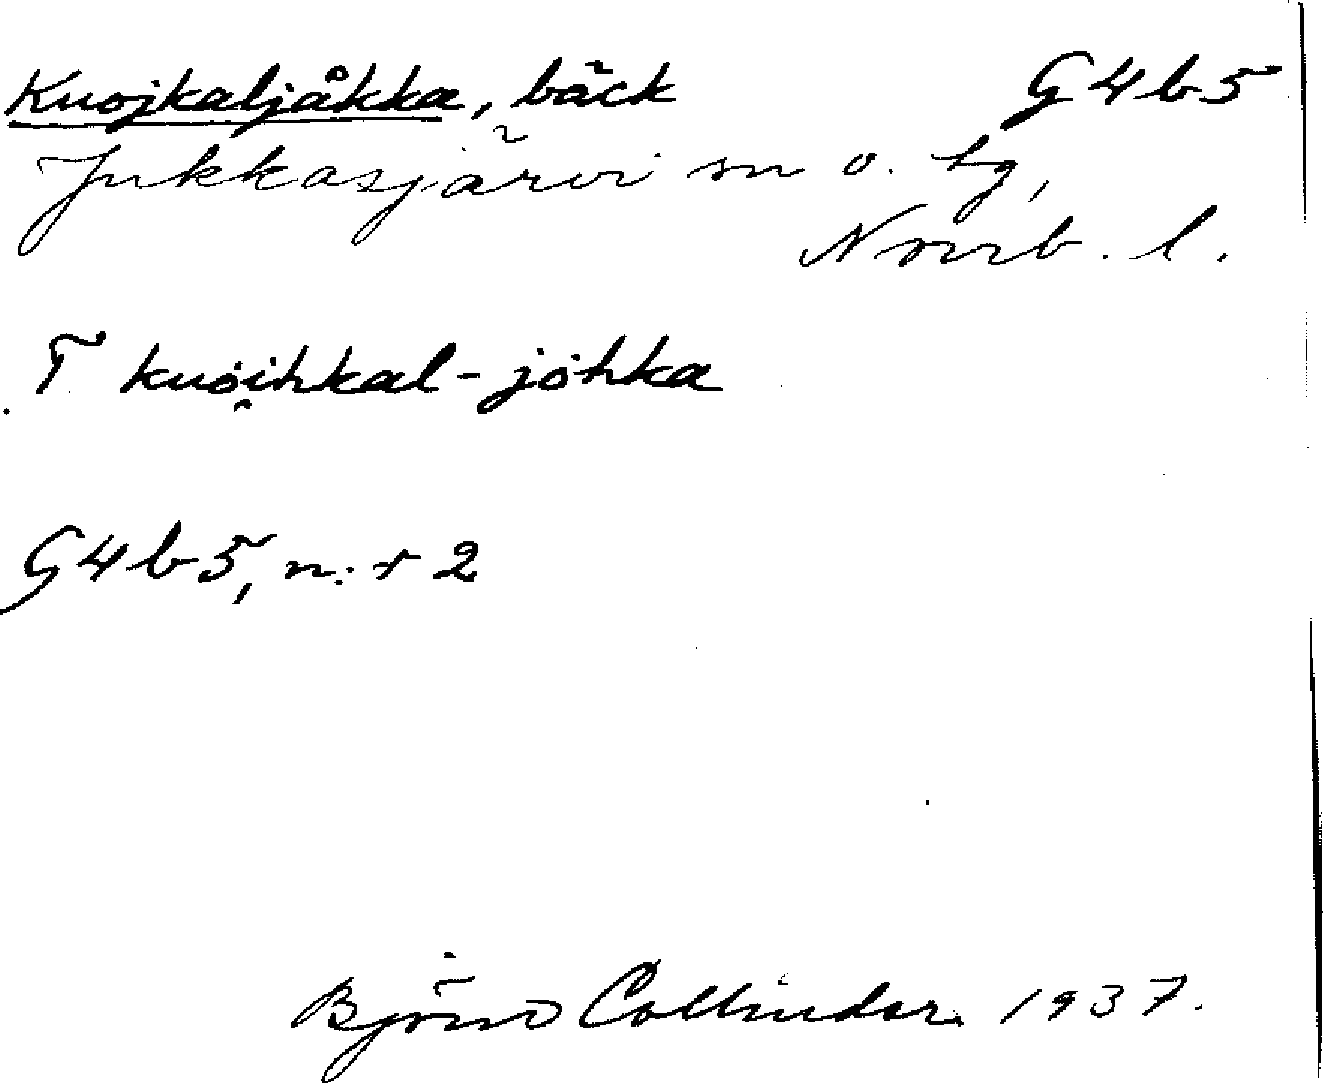 Kuojkaljåkka, bäck G4b5
Jukkasjärvi sn o. tg,
Norrb. l.
T kuȯi̭hkal-jȯhka
G4b5, n:r 2
Björn Collinder 1937.